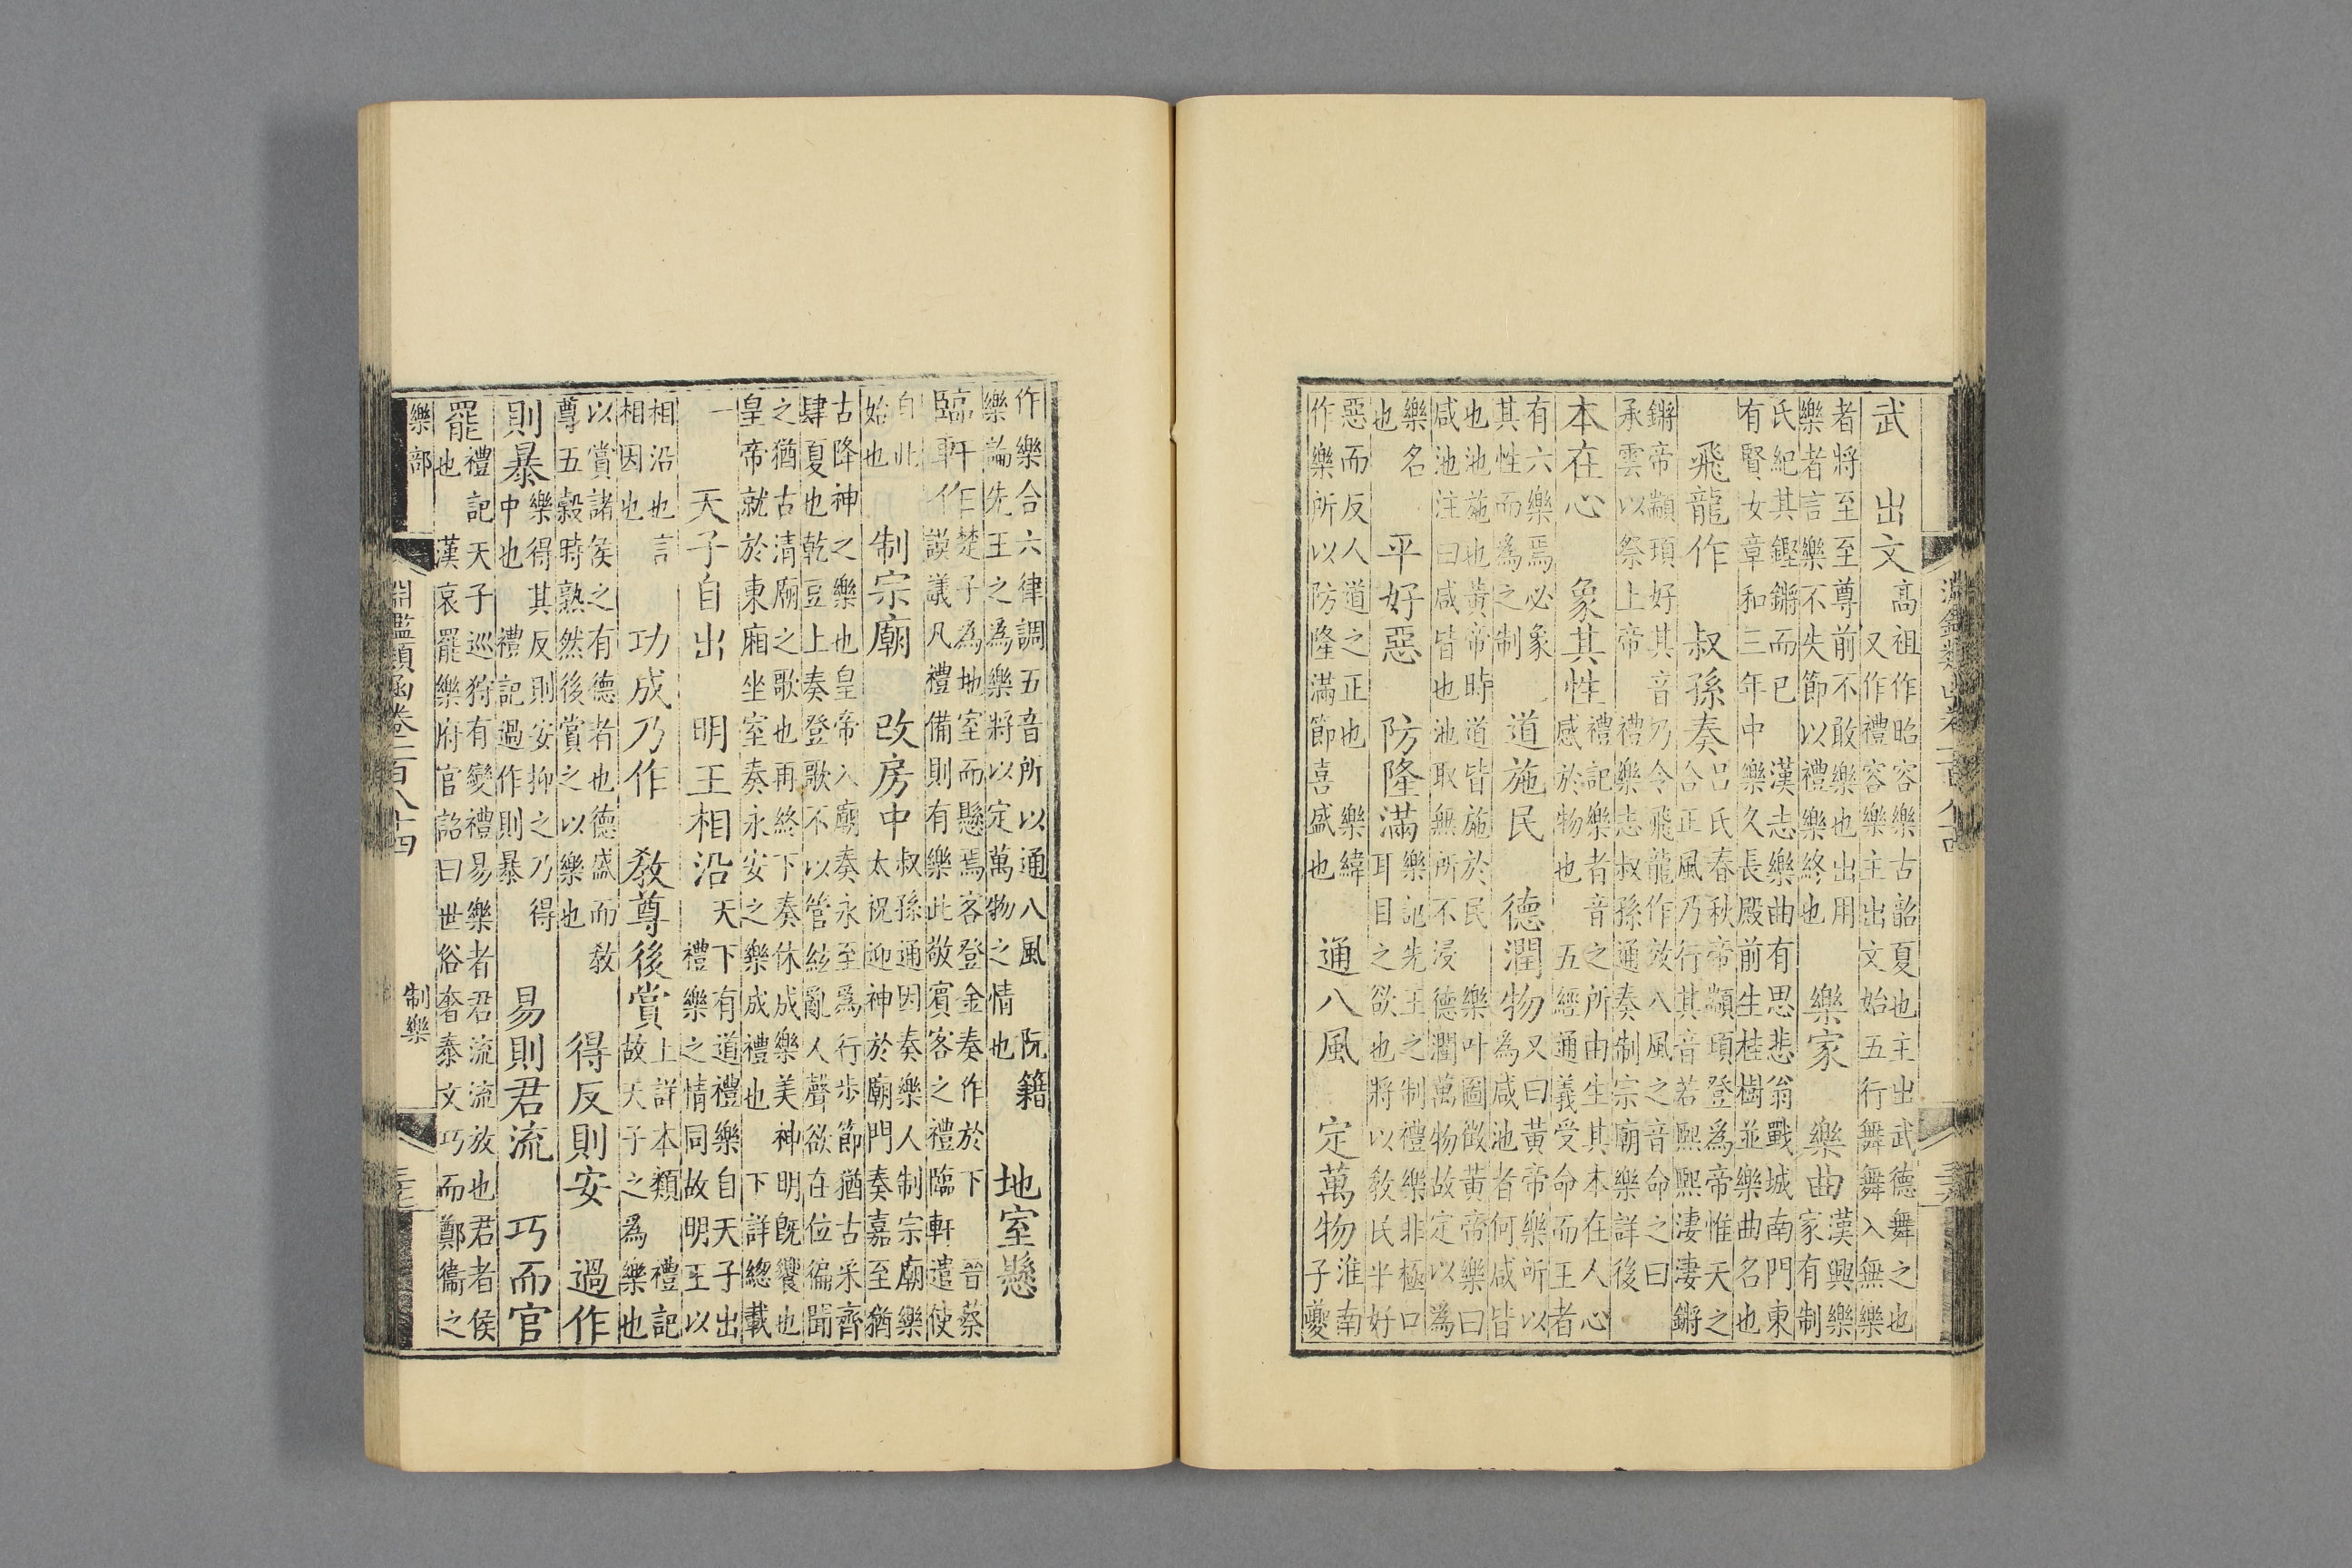 武 出文 高祖作昭容樂古韶夏也主出武德舞之也 又作禮容樂主出文始五行舞舞入無樂
者將至至尊前不敢樂也出用 樂者言樂不失節以禮樂終也 樂家 樂曲 漢興樂 家有制
氏紀其鏗鏘而已 漢志樂曲有思悲翁戰城南門東 有賢女章和三年中 樂久長殿前生桂樹並樂曲名也
飛龍作 叔孫奏 呂氏春秋帝顓頊登為帝惟天之 合正風乃行其音若熙熙淒淒鏘
鏘帝顓頊好其音乃令飛龍作效八風之音命之曰 承雲以祭上帝 禮樂志叔孫通奏制宗廟樂詳後
本在心 象其性 禮記樂者音之所由生其本在人心 感於物也 五經通義受命而王者
有六樂焉必象 其性而為之制 道施民 德潤物 又曰黃帝樂所以 為咸池者何咸皆
也池施也黃帝時道皆施於民 樂叶圖徵黃帝樂曰 咸池注曰咸皆也池取無所不浸 德潤萬物故定以為
樂名 也 平好惡 防隆滿 樂記先王之制禮樂非極口 耳目之欲也將以教民平好
惡而反人道之正也 樂緯 作樂所以防隆滿節喜盛也 通八風 定萬物 淮南 子夔
作樂合六律調五音所以通八風 阮籍 樂論先王之為樂將以定萬物之情也 地室懸
臨軒作 楚子為地室而懸焉客登金奏作於下 晉蔡 謨議凡禮備則有樂此敬賓客之禮臨軒遣使
自此 始也 制宗廟 改房中 叔孫通因奏樂人制宗廟樂 太祝迎神於廟門奏嘉至猶
古降神之樂也皇帝入廟奏永至為行步節猶古采齊 肆夏也乾豆上奏登歌不以管絃亂人聲欲在位徧聞
之猶古清廟之歌也再終下奏休成樂美神明既饗也 皇帝就於東廂坐室奏永安之樂成禮也 下詳總載
一 天子自出 明王相沿 天下有道禮樂自天子出 禮樂之情同故明王以
相沿也言 相因也 功成乃作 教尊後賞 上詳本類 禮記 故天子之為樂也
以賞諸侯之有德者也德盛而教 尊五穀時熟然後賞之以樂也 得反則安 過作
則暴 樂得其反則安抑之乃得 中也 禮記過作則暴 易則君流 巧而官
罷 禮記天子巡狩有變禮易樂者君流流放也君者侯 也 漢哀罷樂府官詔曰世俗奢泰文巧而鄭衞之
樂部 淵鑑類函卷一百八十四 制樂